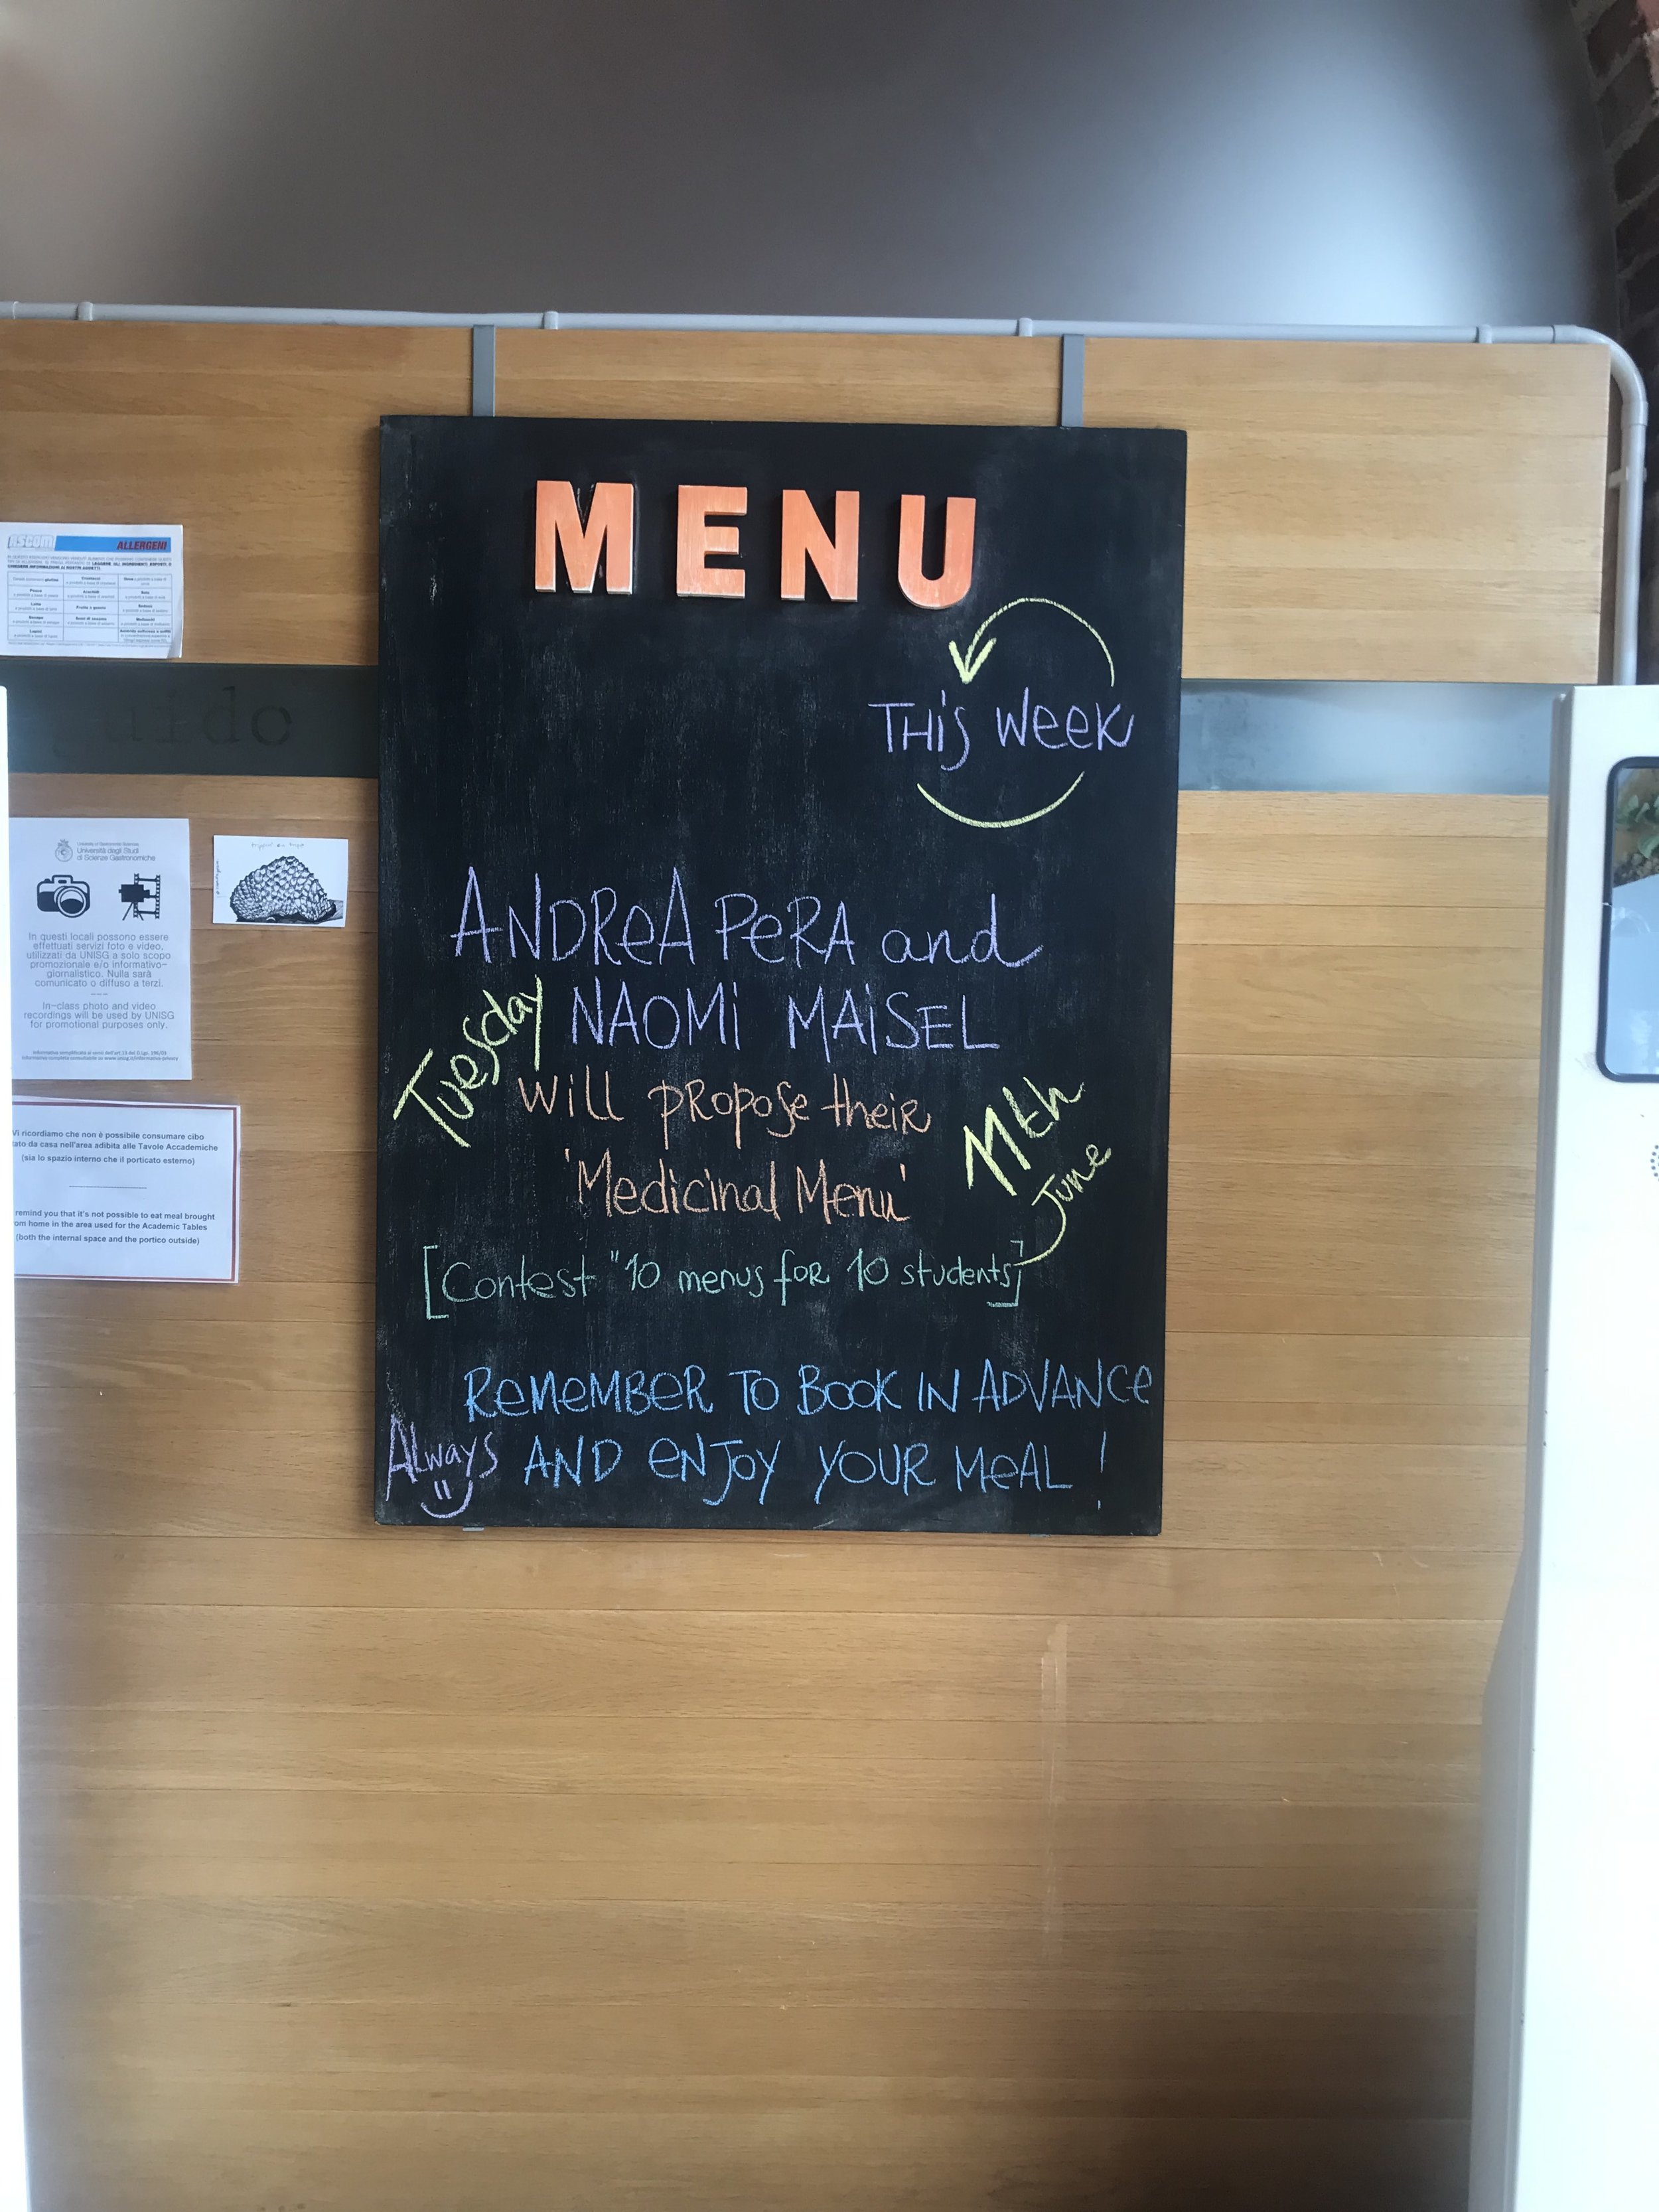 MENU
THiS WEEK
ANDREA PERA and
NAOMi MAiSEL
Tuesday
will propose their
'Medicinal Menu'
11th
June
[Contest "10 menus for 10 students"]
REMEMBER TO BOOK IN ADVANCE
ALways
AND ENJOY YOUR MEAL!
ascom ALLERGENI
guido
University of Gastronomic Sciences
Università degli Studi
di Scienze Gastronomiche
In questi locali possono essere
effettuati servizi foto e video,
utilizzati da UNISG a solo scopo
promozionale e/o informativo-
giornalistico. Nulla sarà
comunicato o diffuso a terzi.
In-class photo and video
recordings will be used by UNISG
for promotional purposes only.
Vi ricordiamo che non è possibile consumare cibo
da casa nell'area adibita alle Tavole Accademiche
(sia lo spazio interno che il porticato esterno)
remind you that it's not possible to eat meal brought
home in the area used for the Academic Tables
(both the internal space and the portico outside)